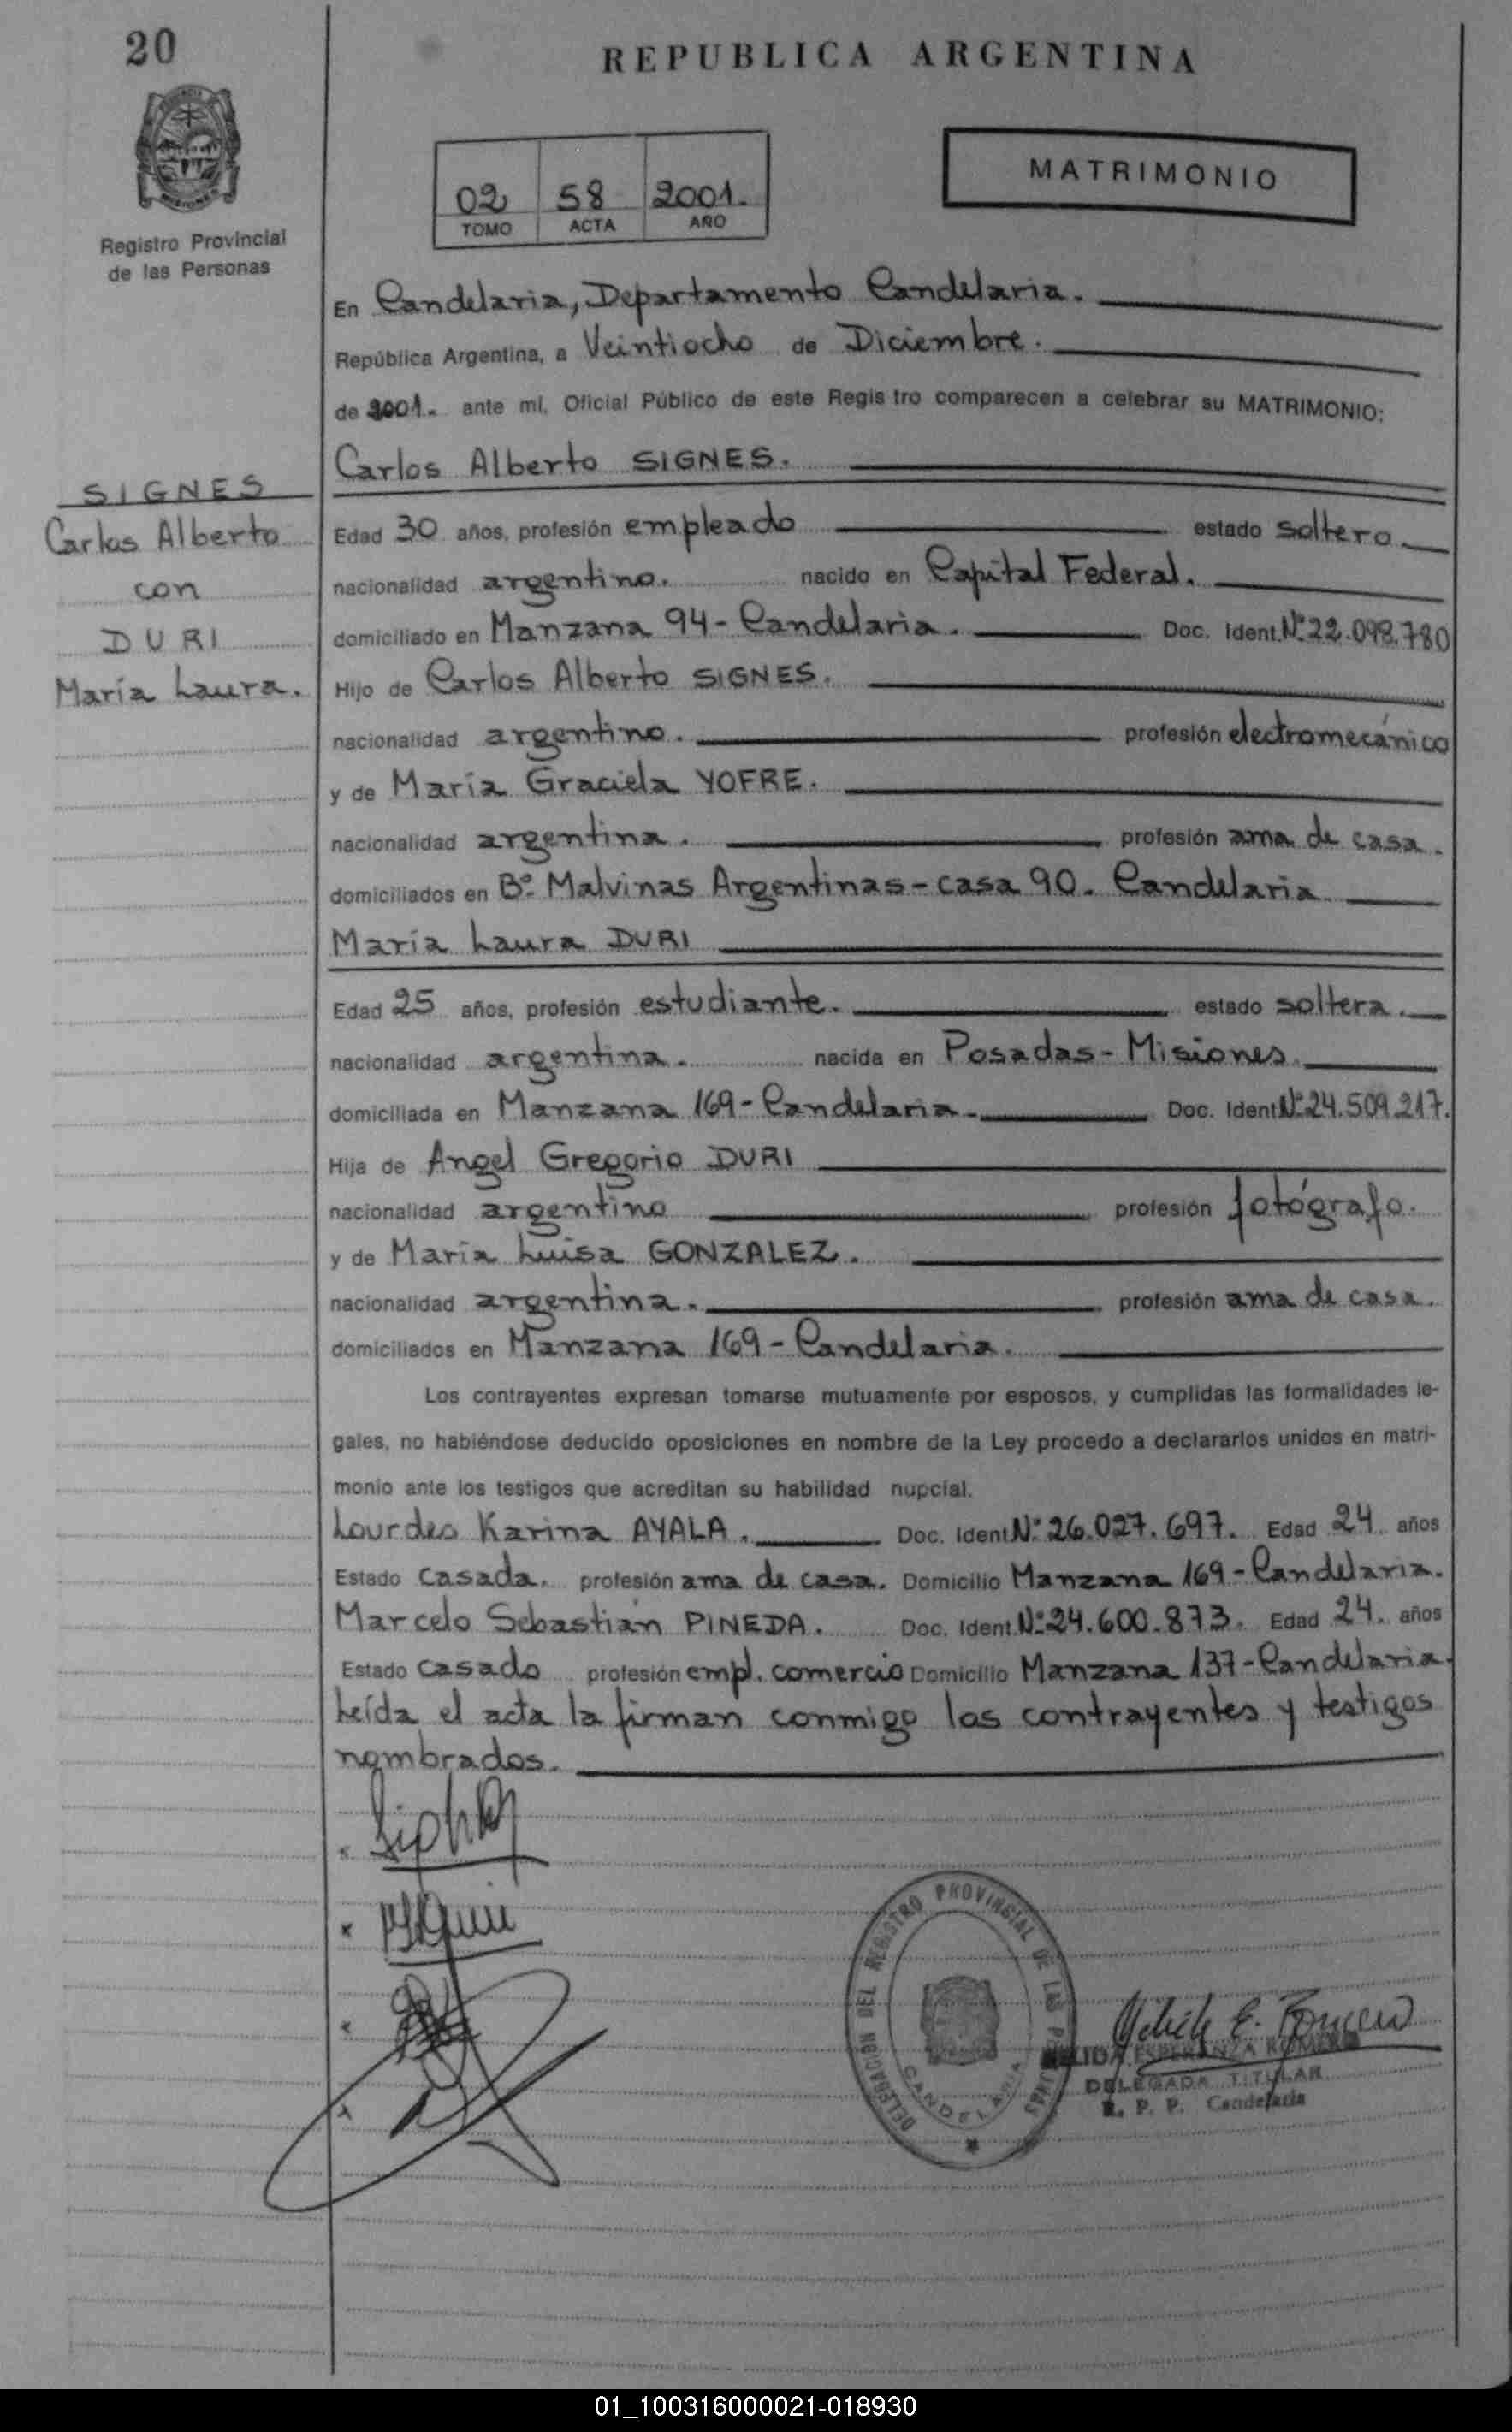 20
REPUBLICA ARGENTINA
MATRIMONIO
02 58 2001.
TOMO ACTA AÑO
Registro Provincial
de las Personas
En Candelaria, Departamento Candelaria.
República Argentina, a Veintiocho de Diciembre.
de 2001. ante mí, Oficial Público de este Registro comparecen a celebrar su MATRIMONIO:
Carlos Alberto SIGNES.
SIGNES
Carlos Alberto
con
DURI
María Laura.
Edad 30 años, profesión empleado estado soltero.
nacionalidad argentino. nacido en Capital Federal.
domiciliado en Manzana 94- Candelaria. Doc. Ident. Nº 22.098.780
Hijo de Carlos Alberto SIGNES.
nacionalidad argentino. profesión electromecánico
y de María Graciela YOFRE.
nacionalidad argentina. profesión ama de casa.
domiciliados en Bº Malvinas Argentinas-casa 90. Candelaria
María Laura DURI
Edad 25 años, profesión estudiante. estado soltera.
nacionalidad argentina. nacida en Posadas- Misiones.
domiciliada en Manzana 169- Candelaria. Doc. Ident. Nº 24.509.217.
Hija de Angel Gregorio DURI
nacionalidad argentino profesión fotógrafo.
y de María Luisa GONZALEZ.
nacionalidad argentina. profesión ama de casa.
domiciliados en Manzana 169- Candelaria.
Los contrayentes expresan tomarse mutuamente por esposos, y cumplidas las formalidades le-
gales, no habiéndose deducido oposiciones en nombre de la Ley procedo a declararlos unidos en matri-
monio ante los testigos que acreditan su habilidad nupcial.
Lourdes Karina AYALA. Doc. Ident. Nº 26.027.697. Edad 24 años
Estado casada. profesión ama de casa. Domicilio Manzana 169- Candelaria.
Marcelo Sebastián PINEDA. Doc. Ident. Nº 24.600.873. Edad 24. años
Estado casado profesión empl. comercio Domicilio Manzana 137- Candelaria.
Leída el acta la firman conmigo los contrayentes y testigos
nombrados.
DELEGACION DEL REGISTRO PROVINCIAL DE LAS PERSONAS
CANDELARIA
ESPERANZA ROMERO
DELEGADA TITULAR
R. P. P. Candelaria
01_100316000021-018930